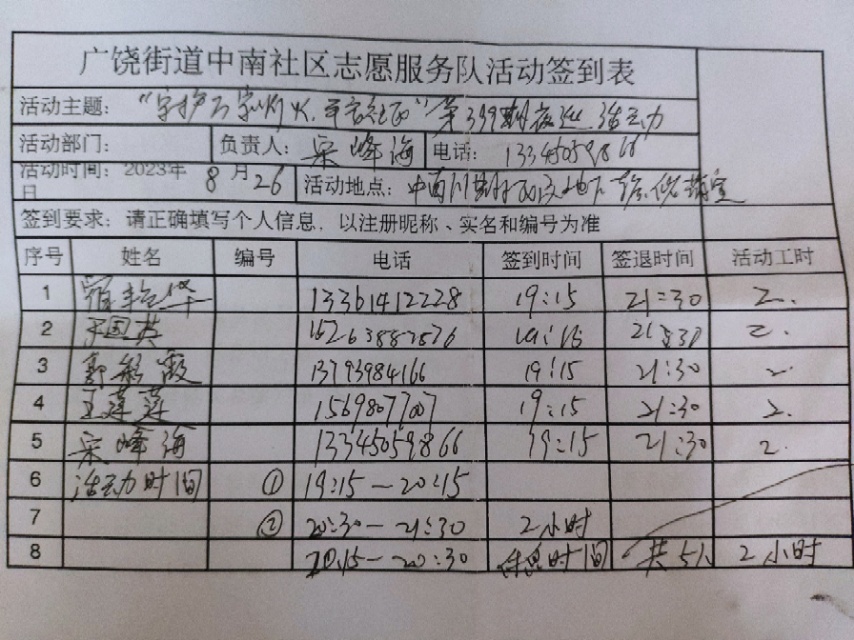 广饶街道中南社区志愿服务队活动签到表
活动主题："守护万家灯火,平安社区"第399期夜巡活动
活动部门： 负责人：宋峰海 电话：13345059866
活动时间：2023年8月26日 活动地点：中南
签到要求：请正确填写个人信息，以注册昵称、实名和编号为准
序号 姓名 编号 电话 签到时间 签退时间 活动工时
1 13361412228 19:15 21:30 2.
2 王国英 15263882876 19:15 21:30 2.
3 郭彩霞 13793984166 19:15 21:30 2
4 王莲莲 15698077007 19:15 21:30 2.
5 宋峰海 13345059866 19:15 21:30 2.
6 活动时间 ① 19:15—20:15
7 ② 20:30—21:30 2小时
8 20.15—20:30 休息时间 共5人 2小时